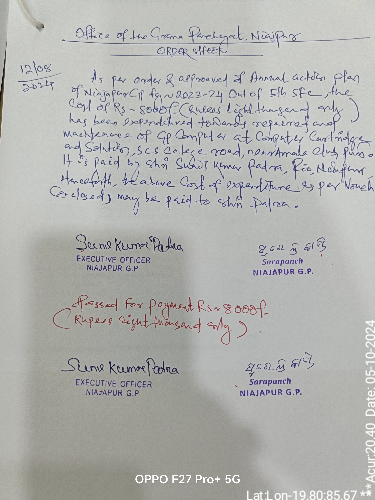 Office of the Grama Panchayat, Niajpur
ORDER SHEET
12/08
2024
As per order & approved of Annual action plan
of Niajpur GP for 2023-24 Out of 5th SFC, the
Cost of Rs- 8000/- (Rupees Eight thousand only)
has been expenditured towards repaired and
maintenance of GP Computer at Computer Cartridge
and Solution, SCS College road, near Amate Club, Puri.
It is paid by Shri Kumar Patra, Niajpur
Henceforth, the above Cost of expenditure as per Vouch
(enclosed) may be paid to Shri Patra.
Kumar Patra
EXECUTIVE OFFICER
NIAJAPUR G.P.
Sarapanch
NIAJAPUR G.P.
Passed for payment Rs- 8000/-
(Rupees eight thousand only)
Kumar Patra
EXECUTIVE OFFICER
NIAJAPUR G.P
Sarapanch
NIAJAPUR G.P.
OPPO F27 Pro+ 5G
Lat:Lon-19.80:85.67 **Acur:20.40 Date: 05-10-2024